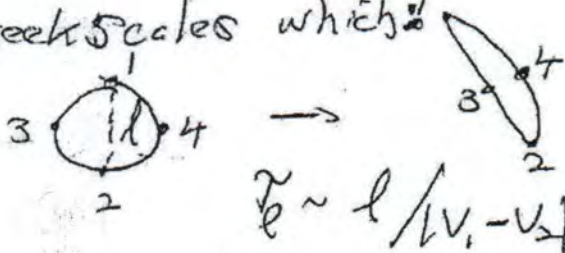 seek scales which:
1
3 l 4 → 3 4
2 2
τ̃_l ~ l / |V₁ - V₂|